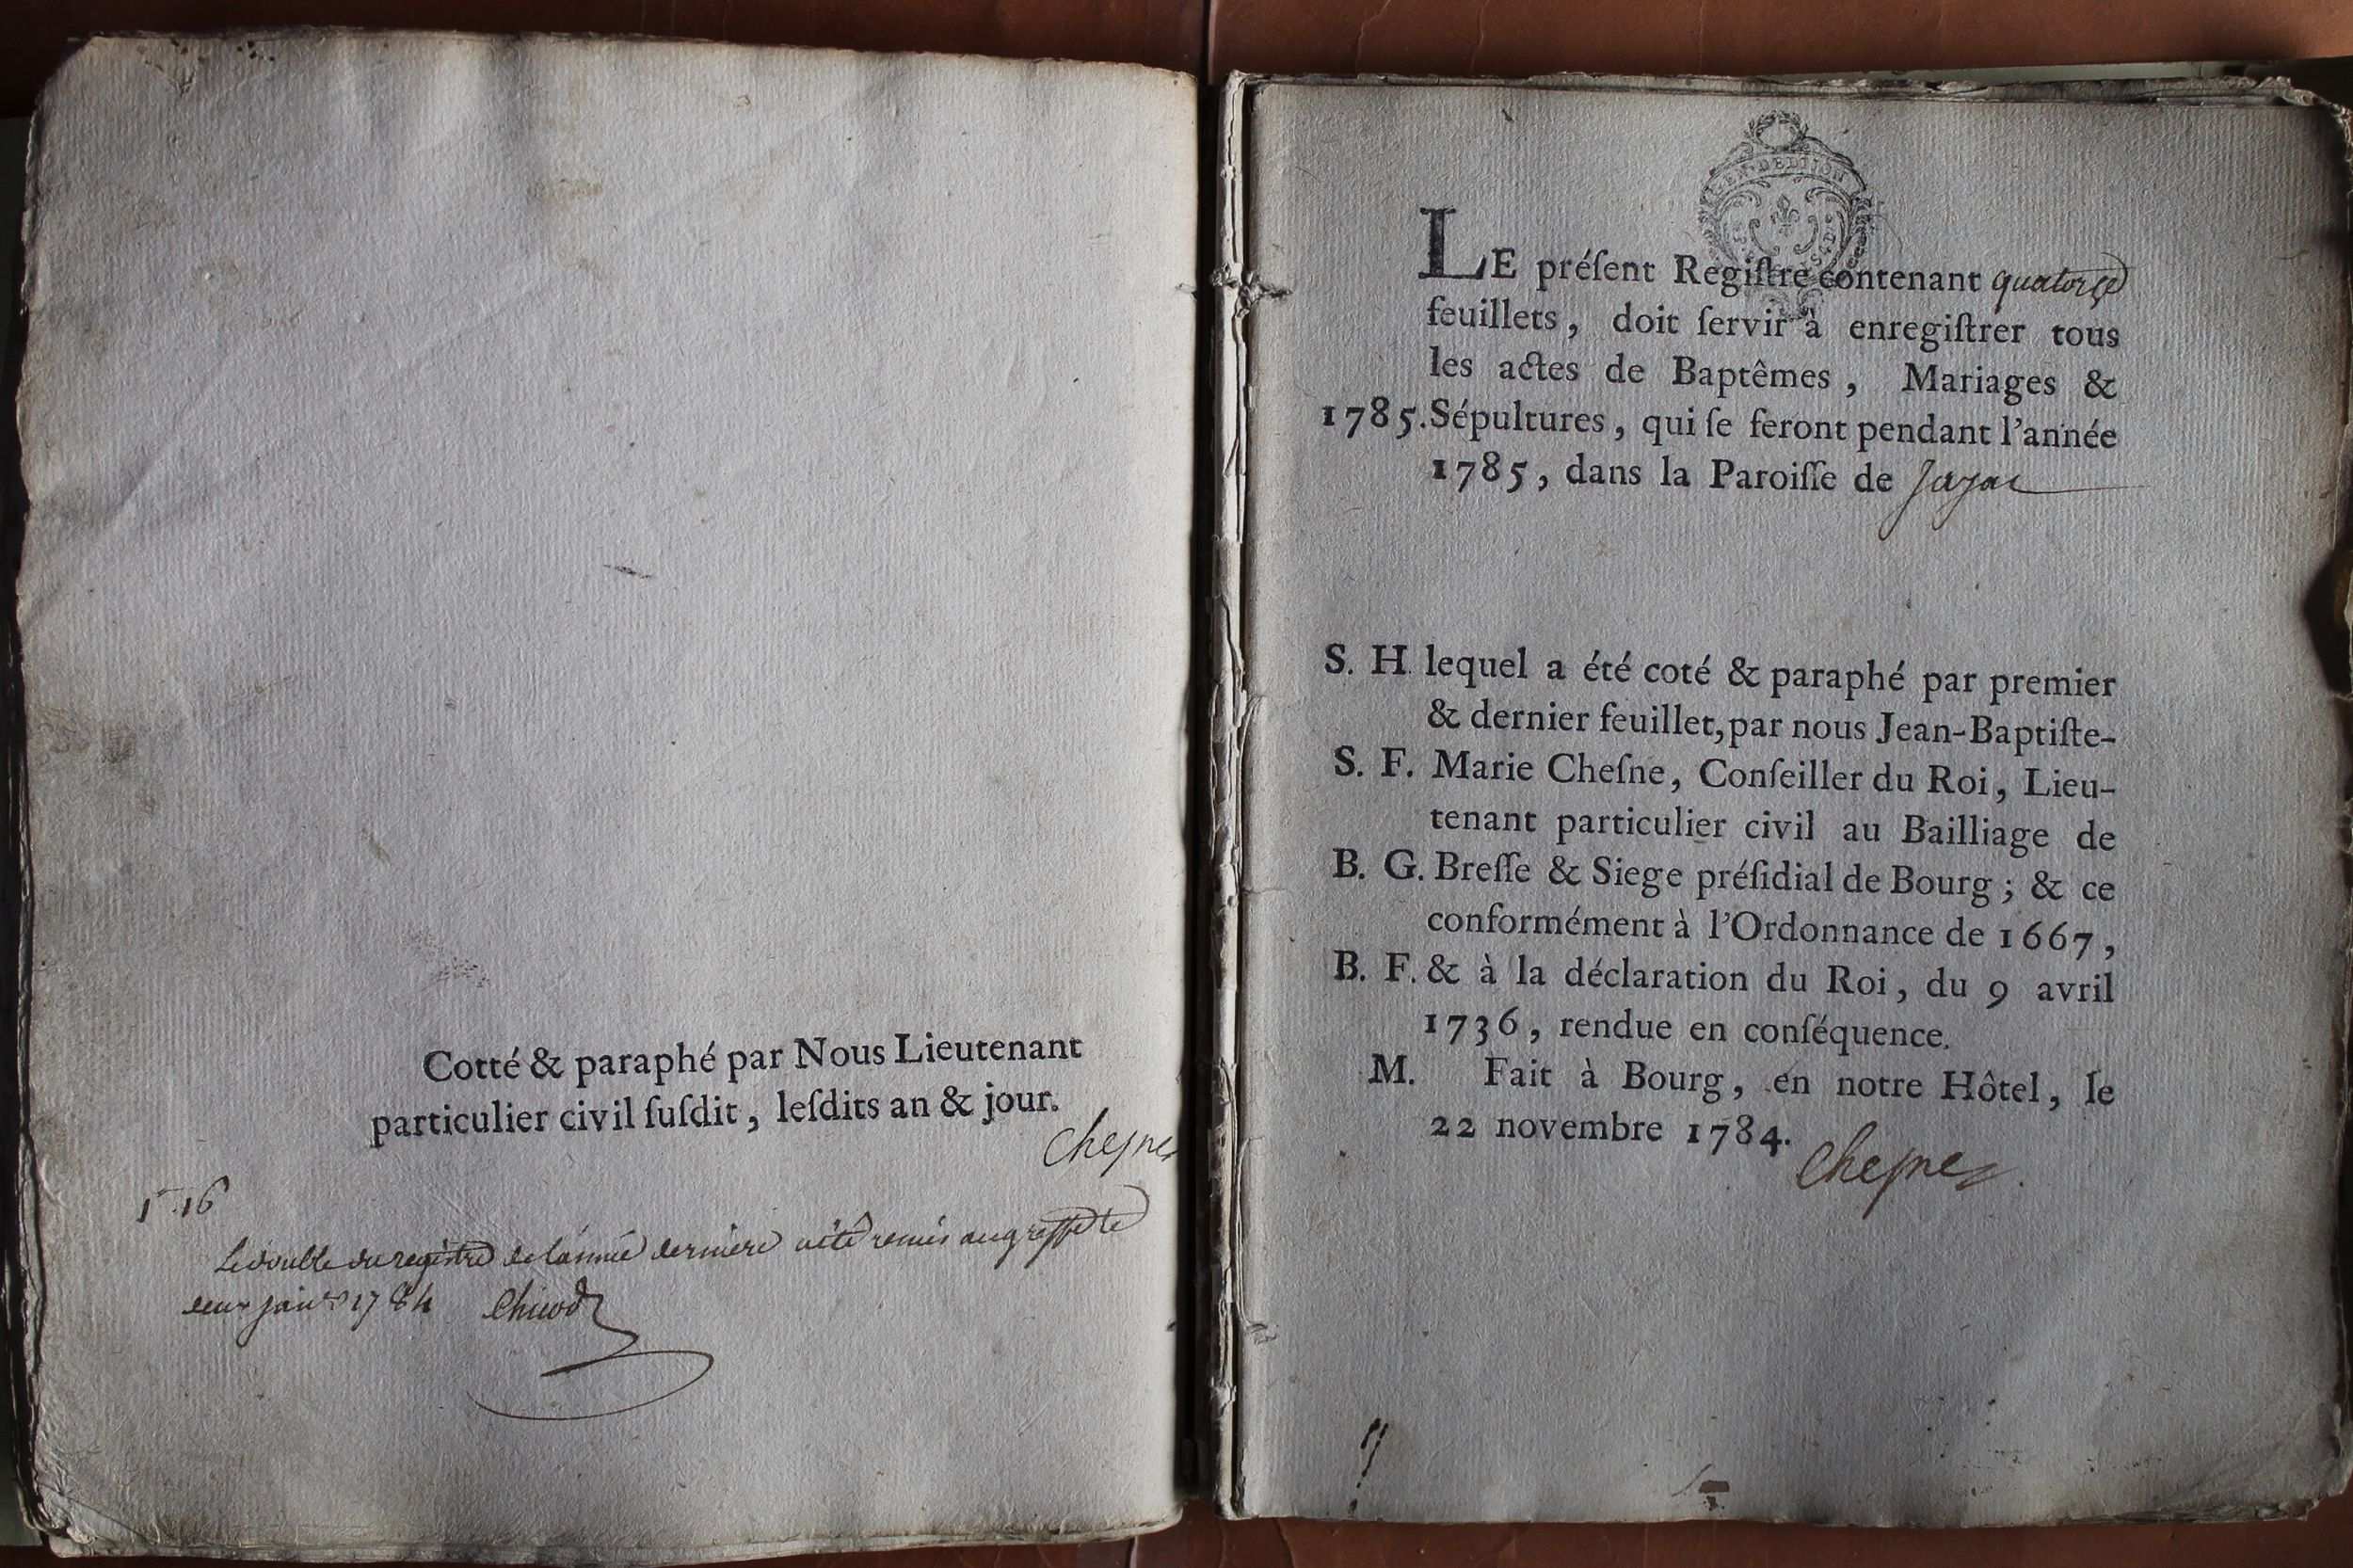 Cotté & paraphé par Nous Lieutenant
particulier civil ſuſdit, leſdits an & jour.
Cheſne
1 . 16
Le double du registre de lannée derniere a été remis au greffe le
deux janv. 1784 Chicod
GEN. DE DIJON
LE préſent Regiſtre contenant quatorze
feuillets, doit ſervir à enregiſtrer tous
les actes de Baptêmes, Mariages &
1785. Sépultures, qui ſe feront pendant l'année
1785, dans la Paroiſſe de Jayat
S. H. lequel a été coté & paraphé par premier
& dernier feuillet, par nous Jean-Baptiſte-
S. F. Marie Cheſne, Conſeiller du Roi, Lieu-
tenant particulier civil au Bailliage de
B. G. Breſſe & Siege préſidial de Bourg; & ce
conformément à l'Ordonnance de 1667,
B. F. & à la déclaration du Roi, du 9 avril
1736, rendue en conſéquence.
M. Fait à Bourg, en notre Hôtel, le
22 novembre 1784.
Cheſne